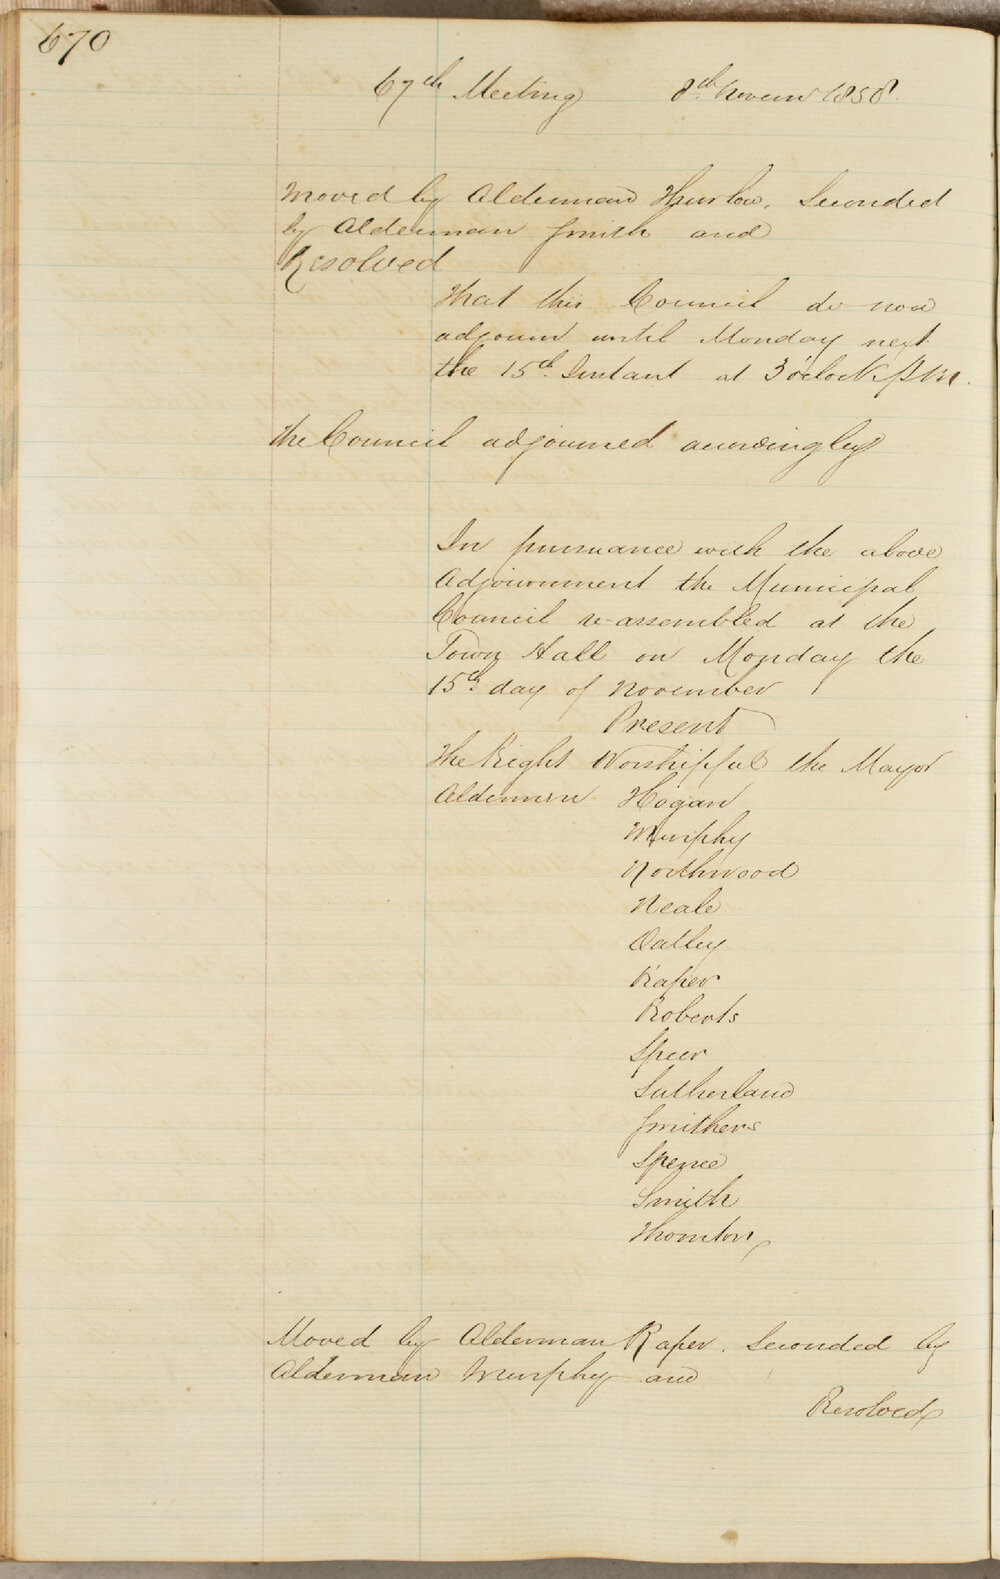 670
67th Meeting 8th Novem 1858.
Moved by Alderman Thurlow. Seconded
by Alderman Smith and
Resolved
That this Council do now
adjourn until Monday next
the 15th Instant at 3 o'clock p.m.
The Council adjourned accordingly
In pursuance with the above
Adjournment the Municipal
Council re-assembled at the
Town Hall on Monday the
15th day of November
Present
The Right Worshipful the Mayor
Aldermen Hogan
Murphy
Northwood
Neale
Oatley
Raper
Roberts
Speer
Sutherland
Smithers
Spence
Smith
Thornton
Moved by Alderman Raper. Seconded by
Alderman Murphy and
Resolved